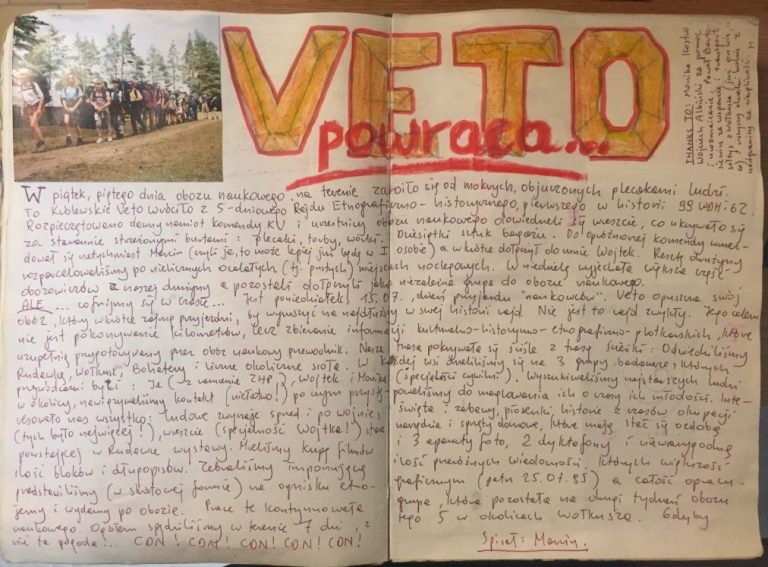 VETO
powraca...
THANKS TO: Monika Kostro
Wojciech za pomoc
W piątek, piątego dnia obozu naukowego, na terenie zaroiło się od mokrych, objuczonych plecakami ludzi.
To Kublewskie Veto wróciło z 5-dniowego Rajdu Etnograficzno-historycznego, pierwszego w historii 99 WDH-62.
Rozpieczętowano dawny namiot komendy KV i uczestnicy obozu naukowego dowiedzieli się wreszcie, co ukrywało się
za starannie strzeżonymi burtami: plecaki, torby, worki. Dziesiątki sztuk bagażu. Do opróżnionej komendy
dował się natychmiast Marcin (czyli ja, to może lepiej już będę w I osobie) a wkrótce dołączył do mnie Wojtek. Resztę drużyny
rozparcelowaliśmy po nielicznych ocalałych (tj. pustych) miejscach noclegowych. W niedzielę wyjechała większa część
obozowiczów z naszej drużyny a pozostali dotrwali jako niezależna grupa do obozu naukowego.
ALE ... cofnijmy się w czasie... Jest poniedziałek 15.07., dzień przyjazdu "naukowców". Veto opuszcza swój
obóz, który wkrótce zajmą przyjezdni, by wyruszyć na najdłuższy w swej historii rajd. Nie jest to rajd zwykły. Jego celem
nie jest pokonywanie kilometrów, lecz zbieranie informacji kulturalno-historyczno-etnograficzno-plotkarskich, które
uzupełnią przygotowywany przez obóz naukowy przewodnik. Nasza trasa pokrywała się ściśle z trasą ścieżki: Odwiedziliśmy
Rudawkę, Wołkusz, Bohatery i inne okoliczne sioła. W każdej wsi dzieliliśmy się na 3 grupy badawcze, których
przywódcami byli: Ja (z ramienia ZHP), Wojtek i Monika (specjaliści cywilni). Wyszukiwaliśmy najstarszych ludzi
w okolicy, nawiązywaliśmy kontakt (niełatwo!) po czym przystępowaliśmy do maglowania ich o czasy ich młodości. Interesowało
nas wszystko: ludowe zwyczaje sprzed i po wojnie, święta i zabawy, piosenki, historie z czasów okupacji
(tych było najwięcej!), wreszcie (specjalność Wojtka!) stare narzędzia i sprzęty domowe, które mają stać się ozdobą
powstającej w Rudawce wystawy. Mieliśmy kupę filmów i 3 aparaty foto, 2 dyktafony i niewiarygodną
ilość bloków i długopisów. Zebraliśmy imponującą ilość przeróżnych wiadomości, których większość
przedstawiliśmy (w skrótowej formie) na ognisku etnograficznym (patrz 25.07.95) a całość
i wydamy po obozie. Pracę tę kontynuowała grupa, która pozostała na drugi tydzień obozu
naukowego. Ogółem spędziliśmy w terenie 7 dni, z tego 5 w okolicach Wołkusza. Gdyby
nie ta pogoda... CDN! CDN! CDN! CDN! CDN!
Spisał: Marcin.